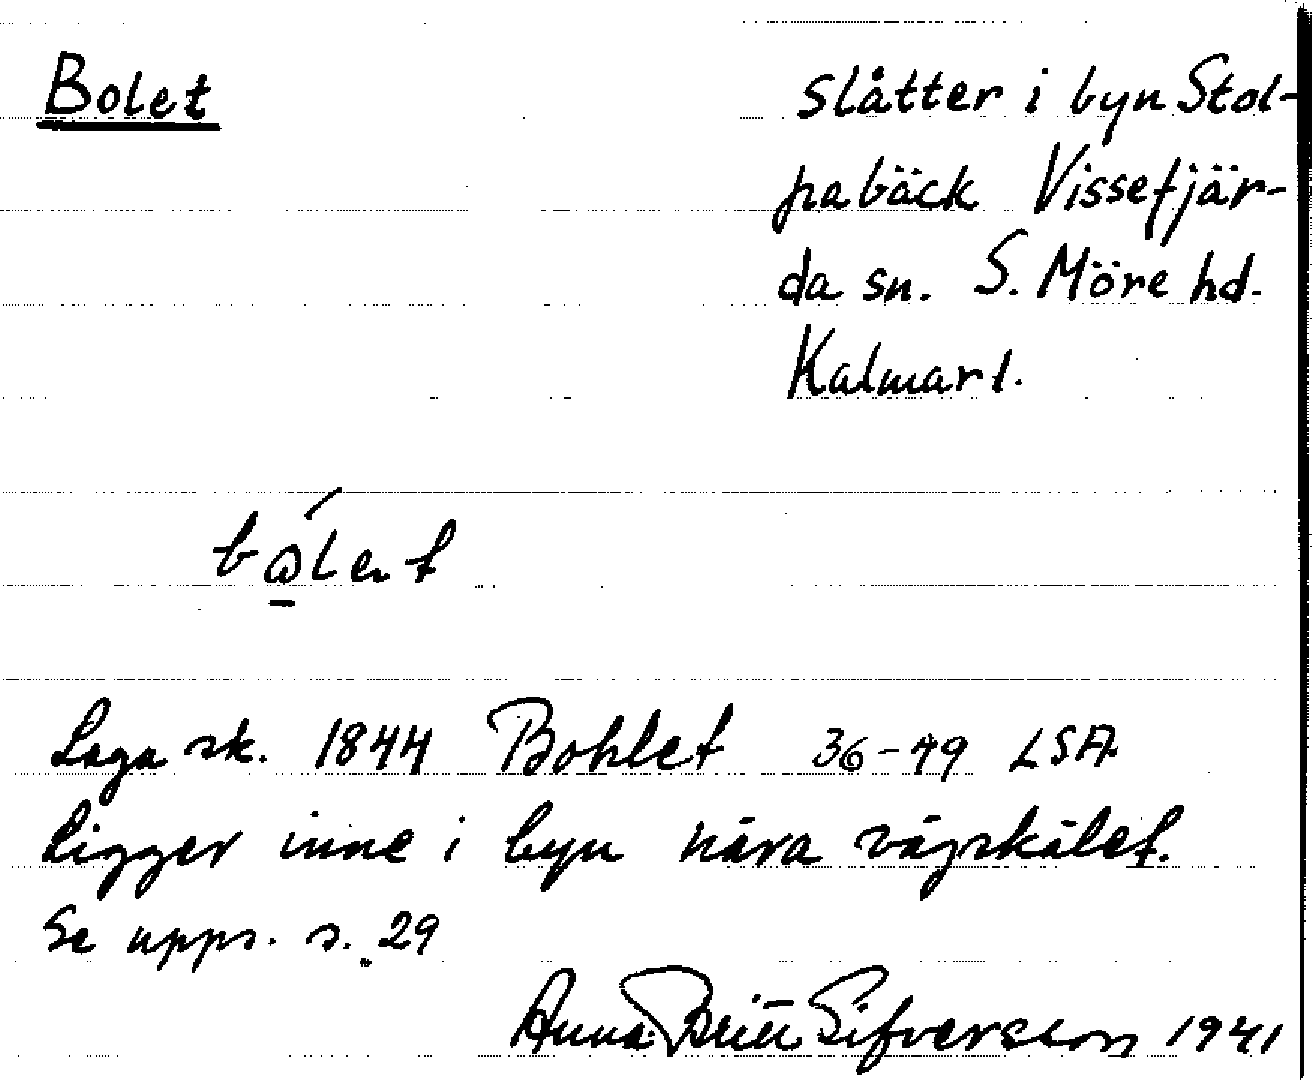 Bolet
slåtter i byn Stol-
pabäck Vissefjär-
da sn. S. Möre hd.
Kalmar l.
Laga sk. 1844 Bohlet 36-49 LSA
ligger inne i byn nära vägskälet.
Se upps. s. 29
Anna Britt Sifversson 1941